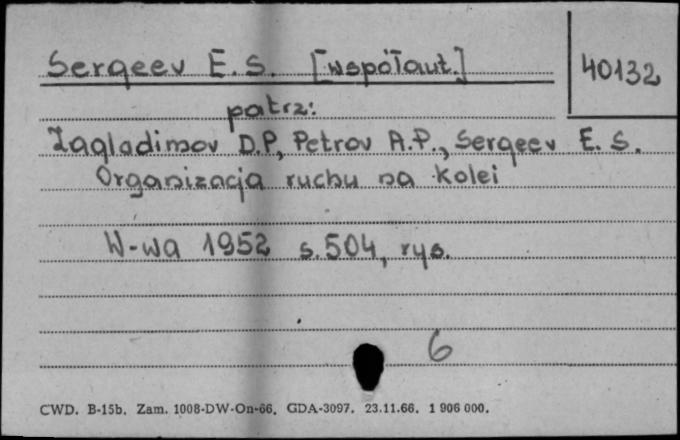 Sergeev E.S. [współaut.]
40132
patrz:
Zagladimov D.P., Petrov A.P., Sergeev E.S.
Organizacja ruchu na kolei
W-wa 1952 s. 504, rys.
6
CWD. B-15b. Zam. 1008-DW-On-66. GDA-3097. 23.11.66. 1 906 000.